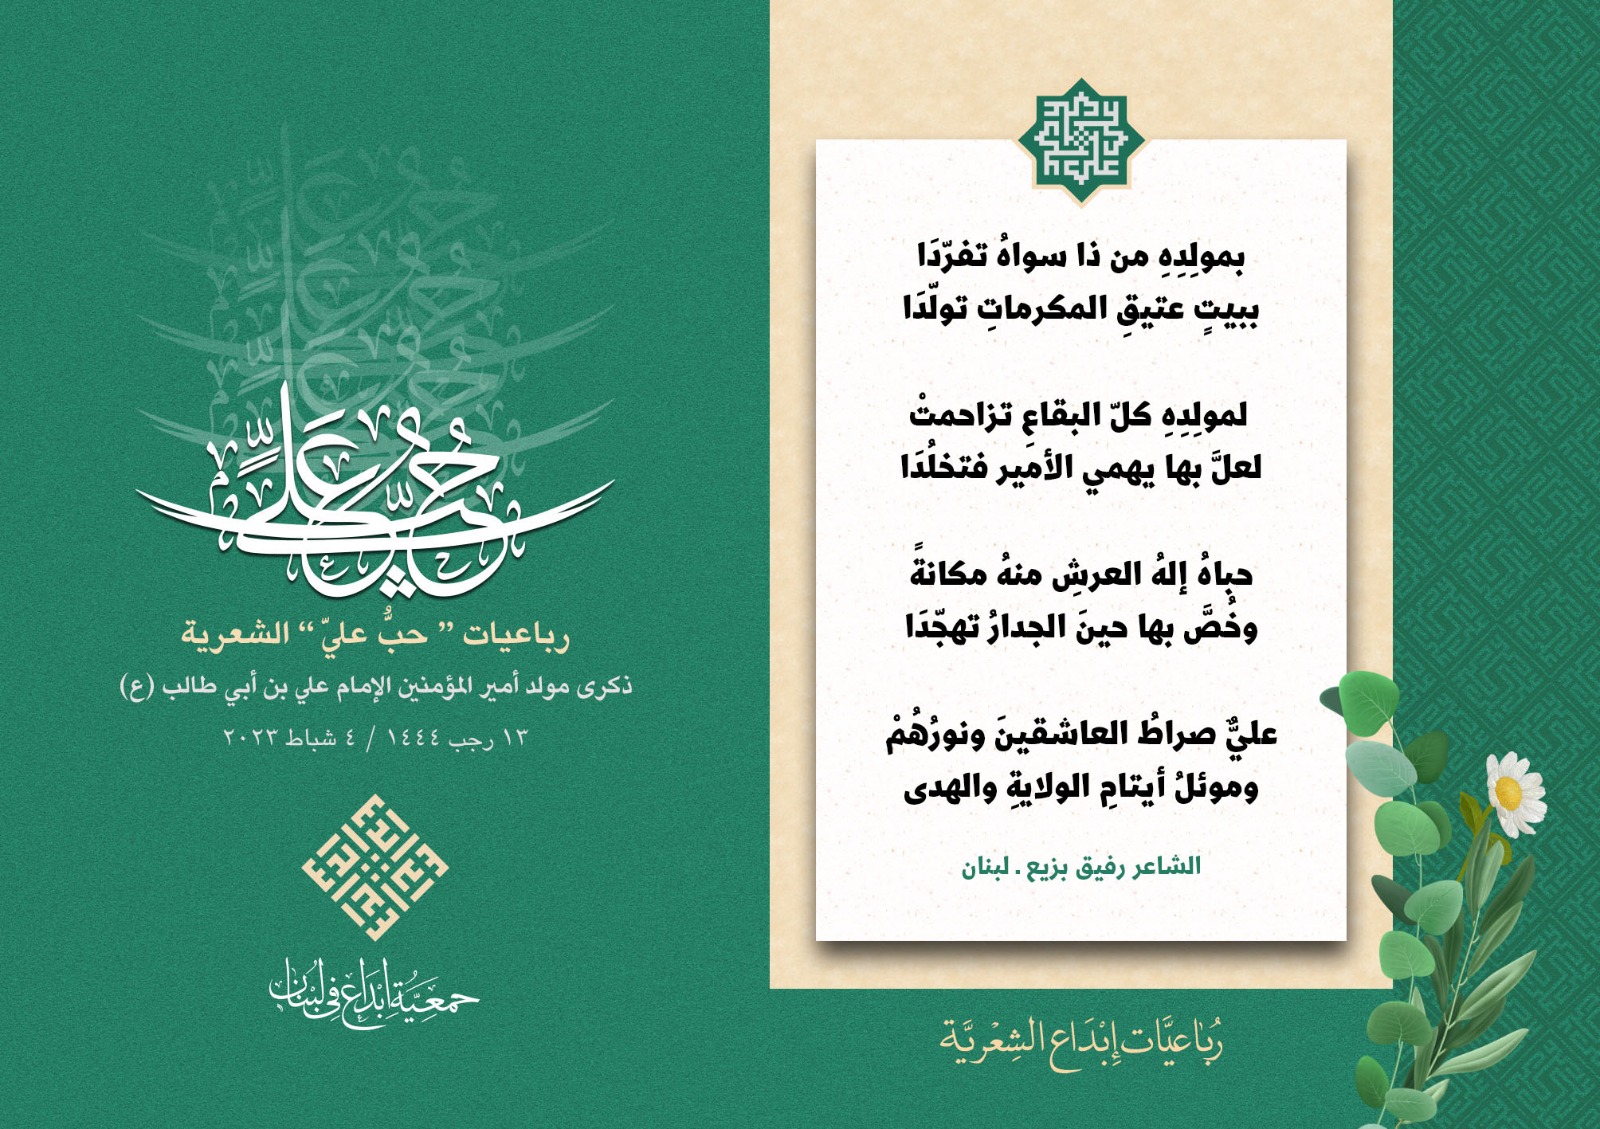 بمولِدِهِ من ذا سواهُ تفرّدَا
ببيتٍ عتيقِ المكرماتِ تولّدَا
لمولِدِهِ كلّ البقاعِ تزاحمتْ
لعلَّ بها يهمي الأمير فتخلُدَا
حباهُ إلهُ العرشِ منهُ مكانةً
وخُصَّ بها حينَ الجدارُ تهجّدَا
عليٌّ صراطُ العاشقينَ ونورُهُمْ
وموئلُ أيتامِ الولايةِ والهدى
الشاعر رفيق بزيع . لبنان
رُبَاعيَّات إِبْدَاع الشِعْريَّة
حُبُّ عَلِيٍّ
رباعيات ” حبُّ عليّ “ الشعرية
ذكرى مولد أمير المؤمنين الإمام علي بن أبي طالب (ع)
١٣ رجب ١٤٤٤ / ٤ شباط ٢٠٢٣
جمعيَّة إبْدَاع في لبْنان